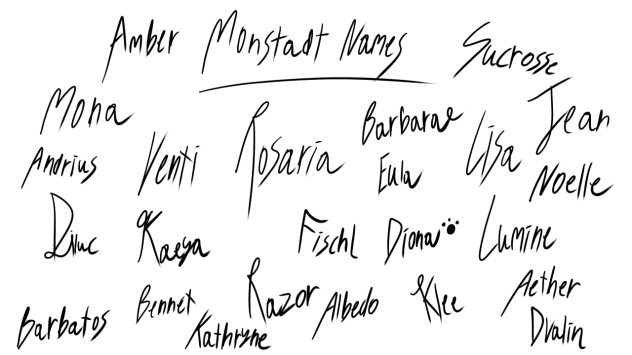 Amber Monstadt Names Sucrosse
Mona Barbarae Jean
Andrius Venti Rosaria Eula Lisa Noelle
Diluc Kaeya Fischl Diona Lumine
Barbatos Bennet Razor Albedo Klee Aether
Kathryne Dvalin